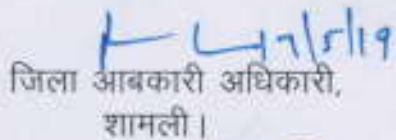 17/5/19
जिला आबकारी अधिकारी,
शामली।